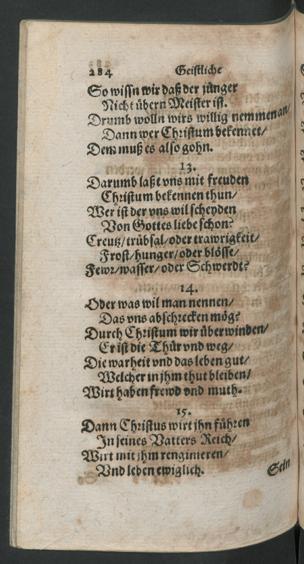 284 Geistliche
So wissn wir daß der jünger
Nicht übern Meister ist.
Drumb wolln wirs willig nemmen an/
Dann wer Christum bekennet/
Dem muß es also gohn.
13.
Darumb laßt vns mit freuden
Christum bekennen thun/
Wer ist der vns wil scheyden
Von Gottes liebe schon?
Creutz/trübsal/oder trawrigkeit/
Frost/hunger/oder blösse/
Fewr/wasser/oder Schwerdt?
14.
Oder was wil man nennen/
Das vns abschrecken mög?
Durch Christum wir überwinden/
Er ist die Thür vnd weg/
Die warheit vnd das leben gut/
Welcher in jhm thut bleiben/
Wirt haben frewd vnd muth.
15.
Dann Christus wirt jhn führen
In seines Vatters Reich/
Wirt mit jhm rengnieren/
Vnd leben ewiglich.
Sein